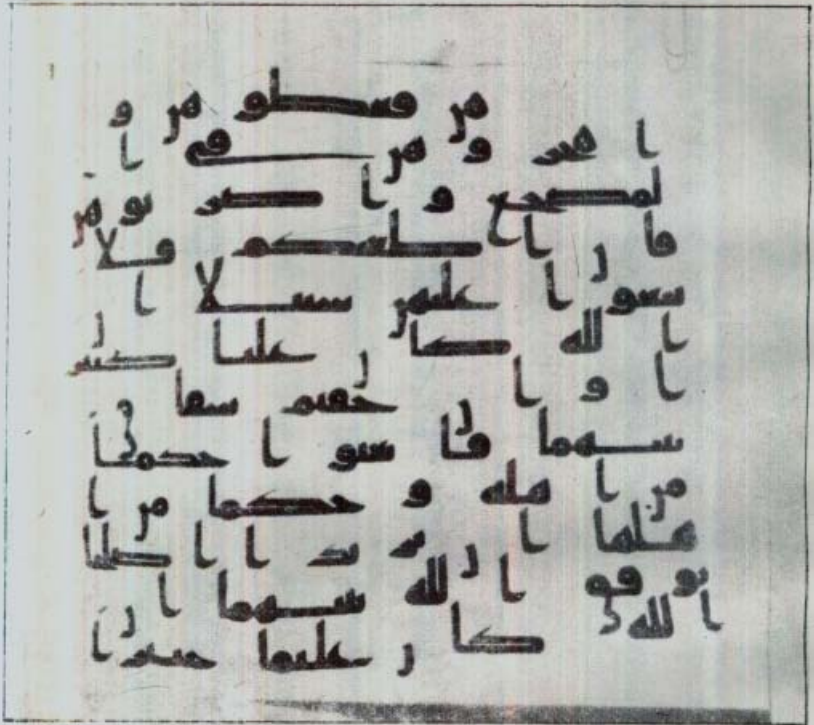 هن فعظوهن و
اهجروهن في ا
لمضجع واضربوهن
فان اطعنكم فلا
تبغوا عليهن سبيلا ان
الله كان عليا كبير
ا وان خفتم شقا
بينهما فابعثوا حكما
من اهله وحكما من ا
هلها ان يريدا اصلحا
يوفق الله بينهما ان
الله كان عليما خبيرا